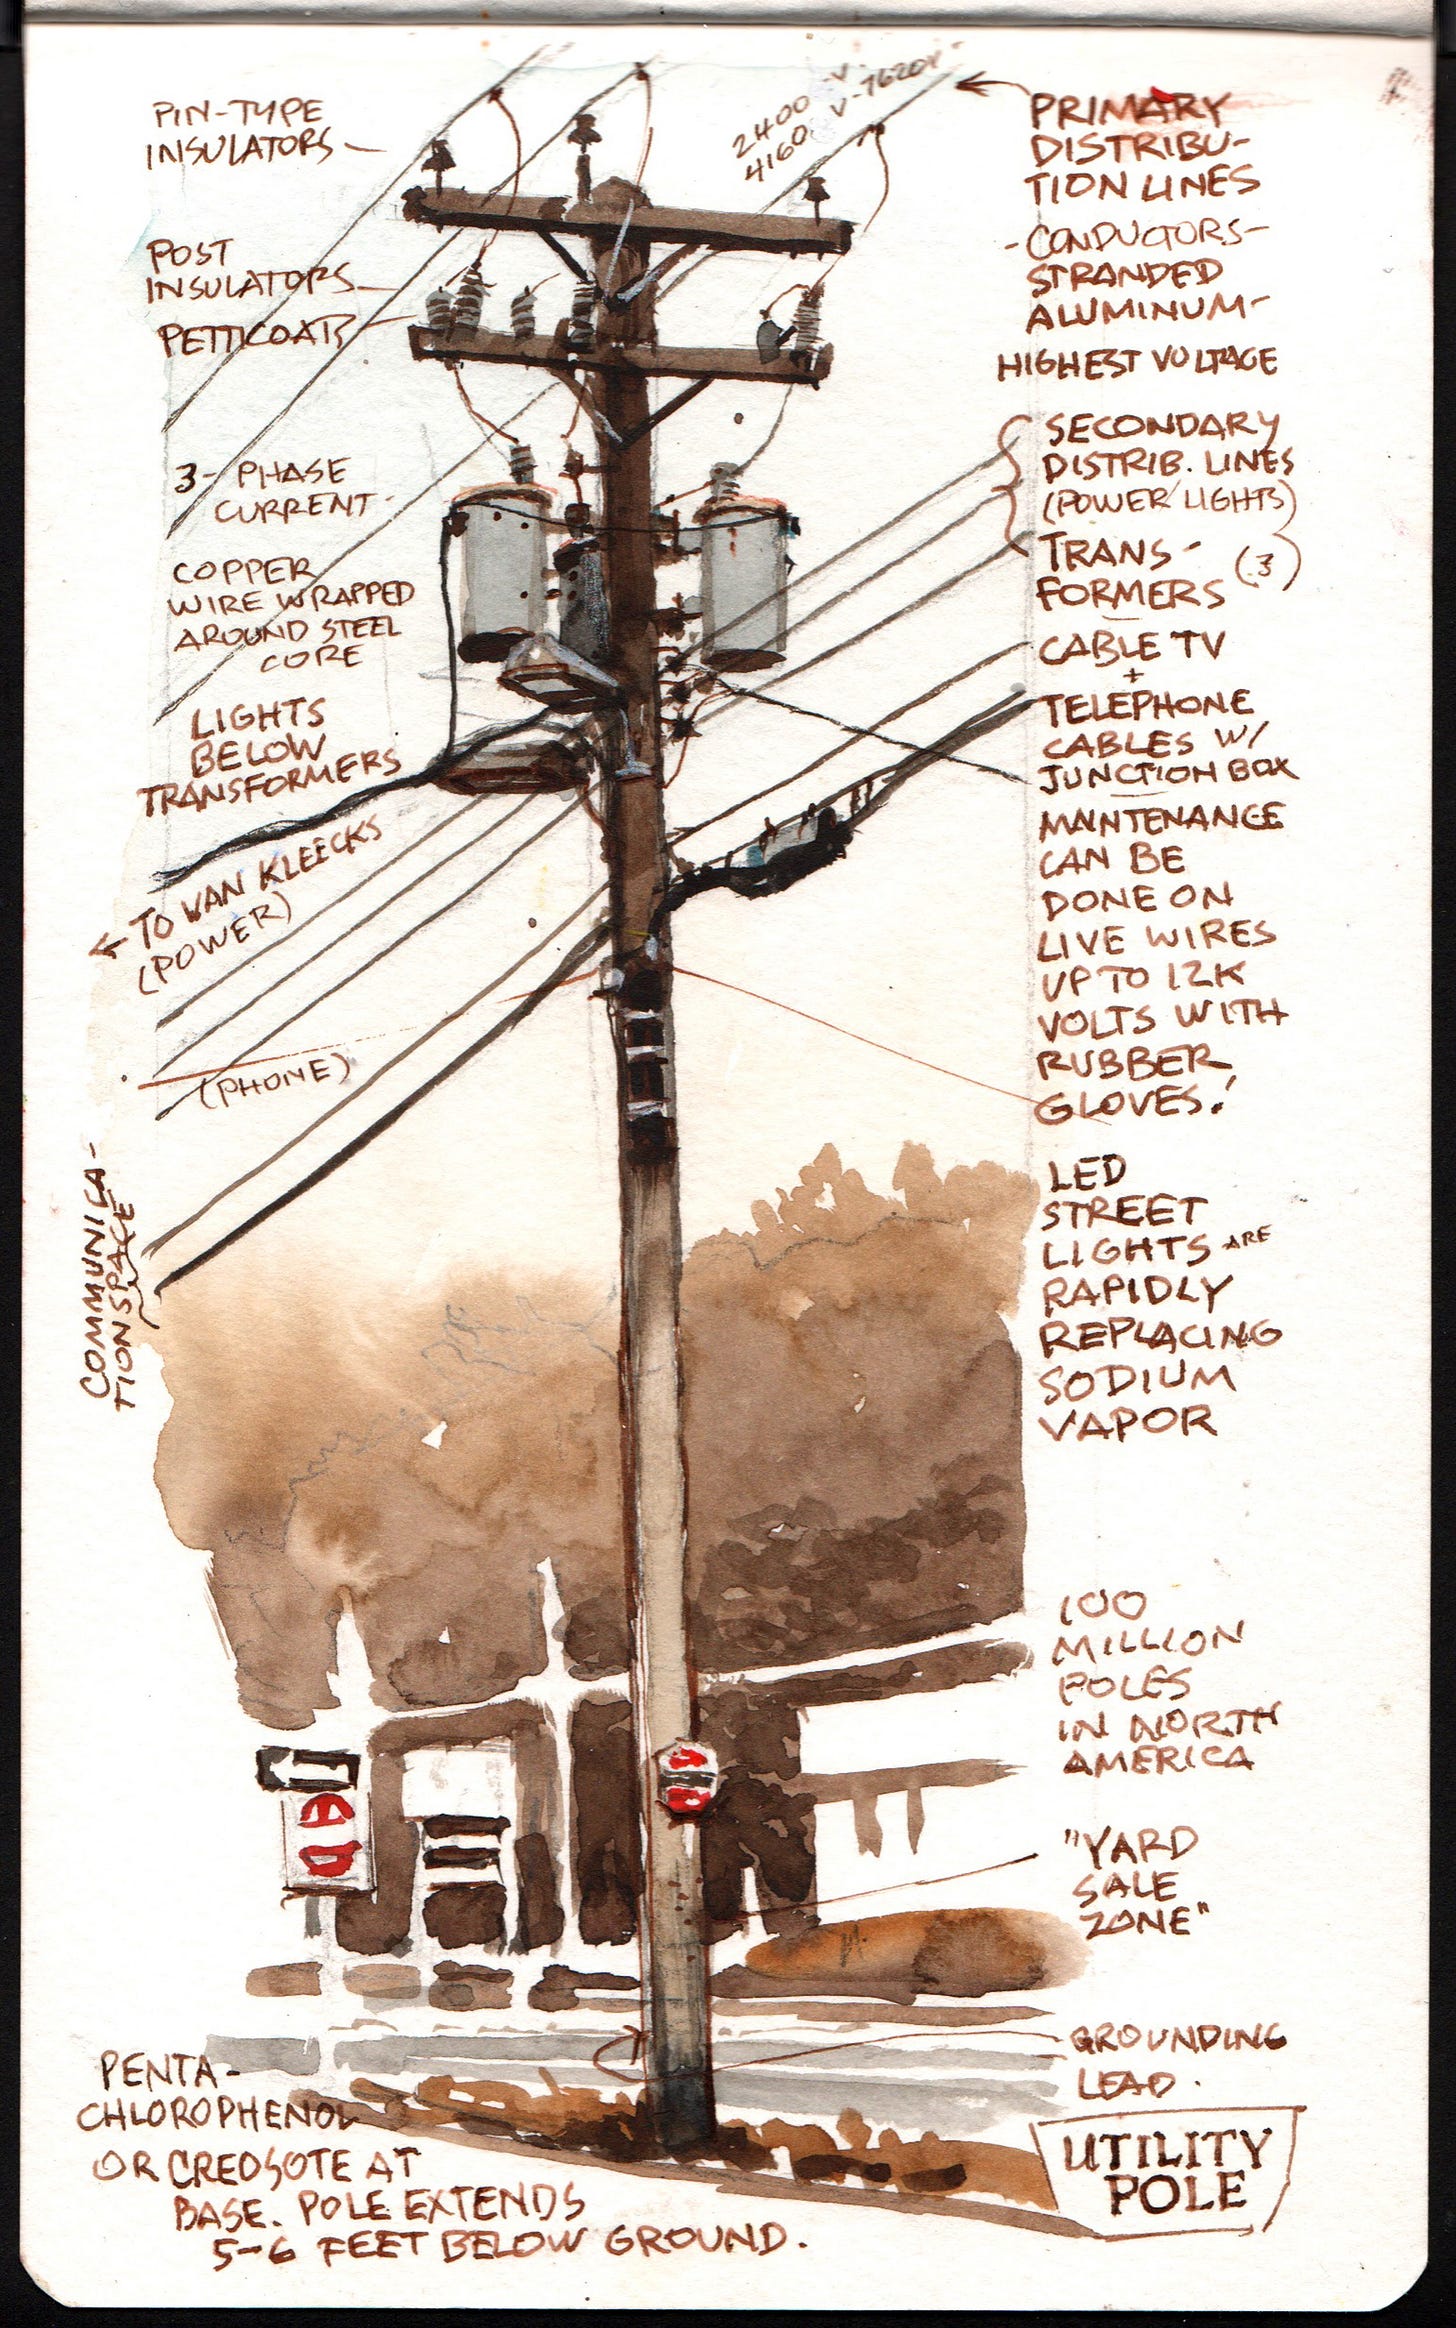 PIN-TYPE
INSULATORS
POST
INSULATORS
PETTICOATS
3-PHASE
CURRENT
COPPER
WIRE WRAPPED
AROUND STEEL
CORE
LIGHTS
BELOW
TRANSFORMERS
TO VAN KLEECKS
(POWER)
(PHONE)
COMMUNICA-
TION SPACE
PENTA-
CHLOROPHENOL
OR CREOSOTE AT
BASE. POLE EXTENDS
5-6 FEET BELOW GROUND.
2400 V.
4160 V-7620V
PRIMARY
DISTRIBU-
TION LINES
-CONDUCTORS-
STRANDED
ALUMINUM-
HIGHEST VOLTAGE
SECONDARY
DISTRIB. LINES
(POWER LIGHTS)
TRANS-
FORMERS (3)
CABLE TV
+
TELEPHONE
CABLES W/
JUNCTION BOX
MAINTENANCE
CAN BE
DONE ON
LIVE WIRES
UP TO 12K
VOLTS WITH
RUBBER
GLOVES!
LED
STREET
LIGHTS ARE
RAPIDLY
REPLACING
SODIUM
VAPOR
100
MILLION
POLES
IN NORTH
AMERICA
"YARD
SALE
ZONE"
GROUNDING
LEAD.
UTILITY
POLE